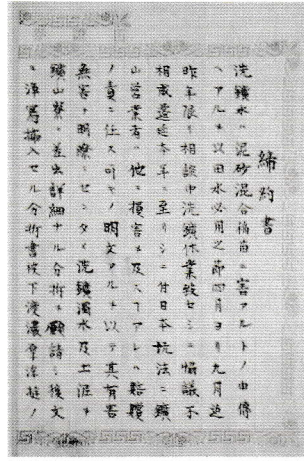 締約書
洗鑛水ハ泥砂混合稲苗ニ害アルトノ由傳
ヘアルヲ以田水必用之節四月ヨリ九月迠
昨年限リ相談中洗鑛休業致セシニ協議不
相成遷延本年ニ至リシニ付日本抗法ニ鑛
山営業者ハ他ニ損害ヲ及スヿアレハ賠償
ノ責ニ任ス可キノ明文アルヲ以テ其有害
無害ヲ明瞭ニセンタメ洗鑛濁水及土泥ヲ
鑛山寮ニ差出詳細ナル分析ヲ願請シ後文
ニ淨寫挿入セル分析書披下渡濃